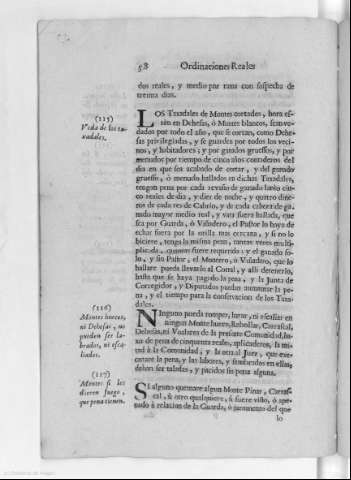 58 Ordinaciones Reales
dos reales, y medio por rama con sospecha de
treinta dias.
(115)
Veda de los ta-
xadales.
LOS Taxadales de Montes cortados, hora es-
tèn en Dehesas, ò Montes blancos, sean ve-
dados por todo el año, que se cortan, como Dehe-
sas privilegiadas, y se guarden por todos los veci-
nos, y habitadores; y por ganados gruessos, y por
menudos por tiempo de cinco años contaderos del
dia en que ser acabado de cortar, y del ganado
gruesso, ò menudo hallados en dichas Taxadales,
tengan pena por cada revaño de ganado hasta cin-
co reales de dia, y diez de noche, y quatro dine-
ros de cada res de Cabrio, y de cada cabeza de ga-
nado mayor medio real, y una fuere hallada, que
sea por Guarda, ò Viñadero, el Pastor lo haya de
echar fuera por la orilla mas cercana, y si no lo
hiciere, tenga la misma pena, tantas veces multi-
plicada, quantas fuere requerido; y el ganado so-
lo, y sin Pastor, el Montero, ò Viñadero, que lo
hallare pueda llevarlo al Corral, y alli detenerlo,
hasta que se haya pagado la pena, y la Junta de
Corregidor, y Diputados puedan aumentar la pe-
na, y el tiempo para la conservacion de los Taxa-
dales.
(116)
Montes huecos,
ni Dehesas, no
pueden ser la-
brados, ni esca-
liados.
NInguno pueda romper, lurar, ni escaliar en
ningun Monte hueco, Rebollar, Carrascal,
Dehesas, ni Vedares de la presente Comunidad, ba-
xo de pena de cinquenta reales, aplicaderos, la mi-
tad à la Comunidad, y la otra al Juez, que exe-
cutare la pena, y las labores, y sembrados en ellas,
deben ser taladas, y pacidos sin pena alguna.
(117)
Montes si les
dieren fuego,
que pena tienen.
SI alguno quemare algun Monte Pinar, Carras-
cal, ò otro qualquiere, si fuere visto, ò apo-
nado à relacion de la Guarda, ò juramento del que
lo